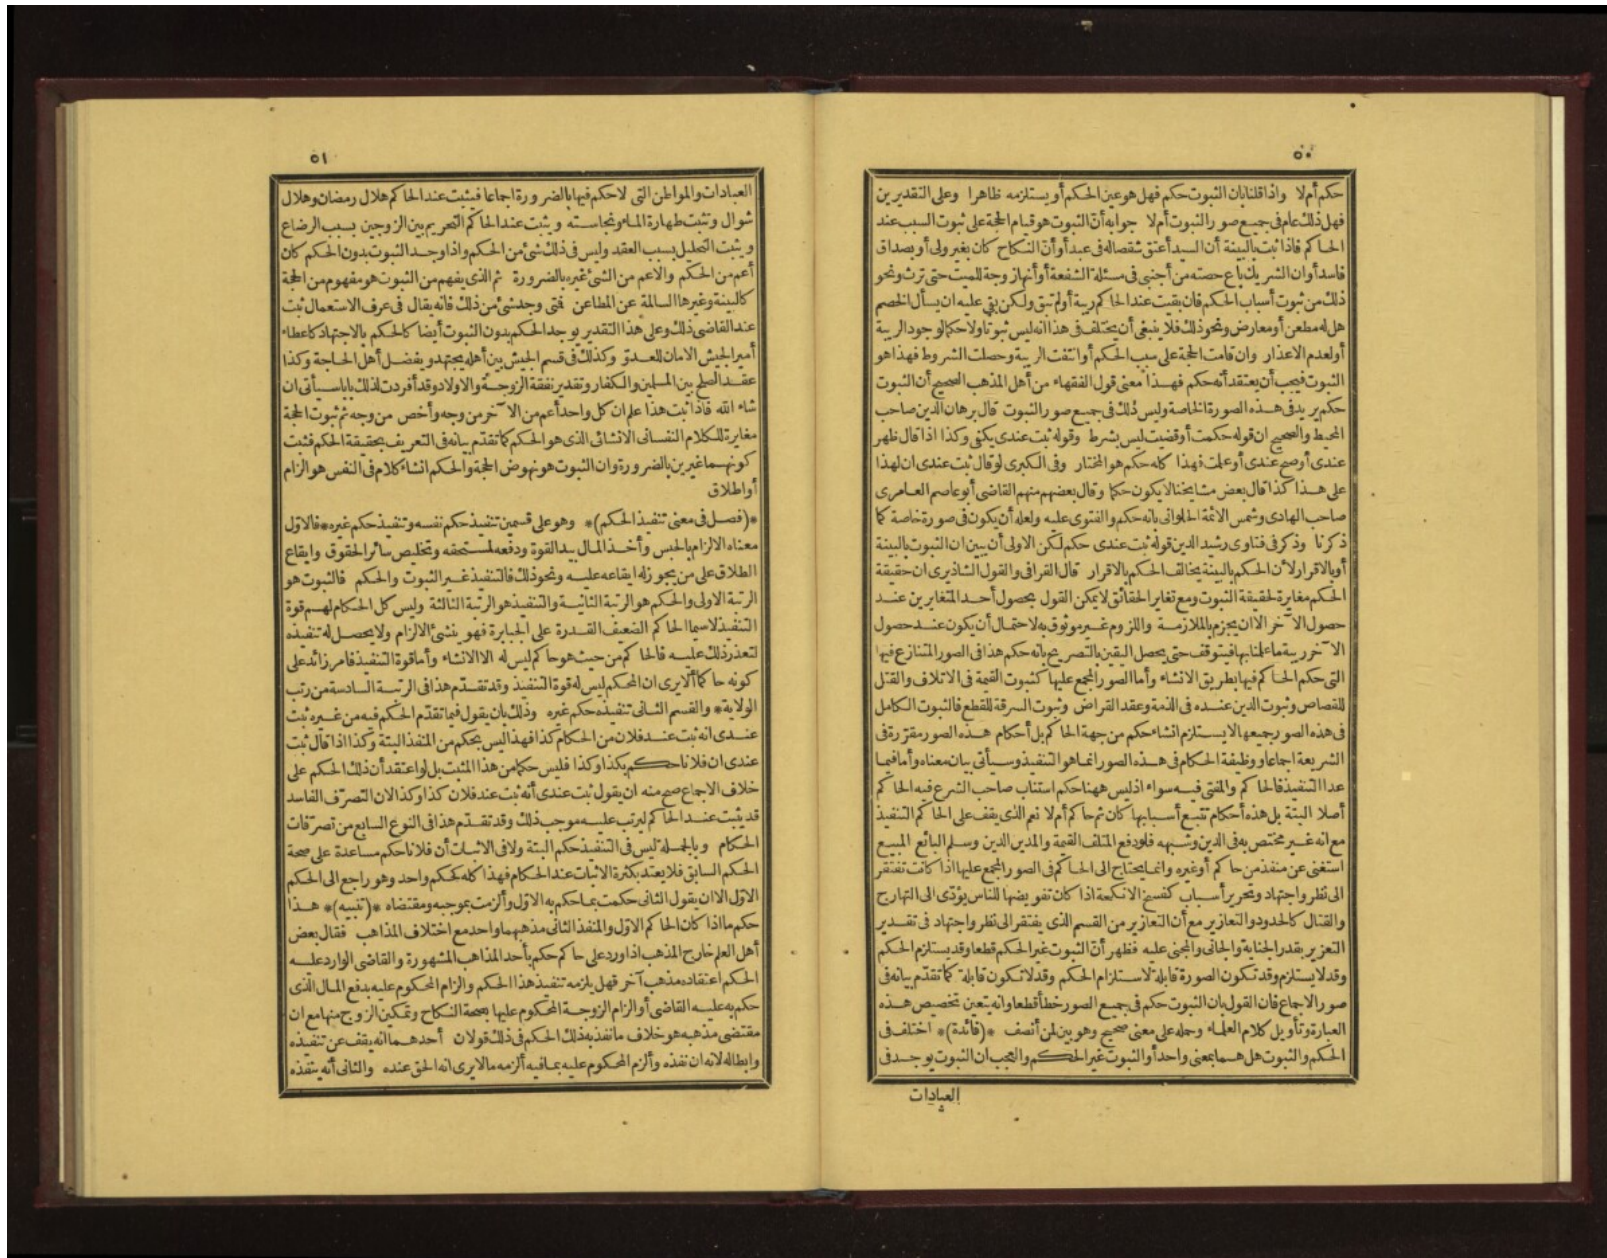 ٥٠
حكم أم لا واذا قلنا بان الثبوت حكم فهل هو عين الحكم أو يستلزمه ظاهرا وعلى التقديرين
فهل ذلك عام فى جميع صور الثبوت أم لا جوابه أن الثبوت هو قيام الحجة على ثبوت السبب عند
الحاكم فاذا ثبت بالبينة أن السيد أعتق شقصا له فى عبد أو أن النكاح كان بغير ولى أو بصداق
فاسد أو ان الشريك باع حصته من أجنبى فى مسئلة الشفعة أو أنها زوجة للميت حتى ترث ونحو
ذلك من ثبوت أسباب الحكم فان بقيت عند الحاكم ريبة أو لم تبق ولكن بقى عليه ان يسأل الخصم
هل له مطعن أو معارض ونحو ذلك فلا ينبغى أن يختلف فى هذا انه ليس ثبوتا ولا حكما لوجود الريبة
أو لعدم الاعذار وان قامت الحجة على سبب الحكم أو انتفت الريبة وحصلت الشروط فهذا هو
الثبوت فيجب أن يعتقد أنه حكم فهذا معنى قول الفقهاء من أهل المذهب الصحيح أن الثبوت
حكم يريد فى هذه الصورة الخاصة وليس ذلك فى جميع صور الثبوت قال برهان الدين صاحب
المحيط والصحيح ان قوله حكمت أو قضيت ليس بشرط وقوله ثبت عندى يكفى وكذا اذا قال ظهر
عندى أو صح عندى أو علمت فهذا كله حكم هو المختار وفى الكبرى لو قال ثبت عندى ان لهذا
على هذا كذا قال بعض مشايخنا لا يكون حكما وقال بعضهم منهم القاضى أبو عاصم العامرى
صاحب الهادى وشمس الائمة الحلوانى بانه حكم والفتوى عليه ولعله أن يكون فى صورة خاصة كما
ذكرنا وذكر فى فتاوى رشيد الدين قوله ثبت عندى حكم لكن الاولى أن يبين ان الثبوت بالبينة
أو بالاقرار لأن الحكم بالبينة يخالف الحكم بالاقرار قال القرافى والقول الشاذ يرى ان حقيقة
الحكم مغايرة لحقيقة الثبوت ومع تغاير الحقائق لا يمكن القول بحصول أحد المتغايرين عند
حصول الآخر الا ان يجزم بالملازمة واللزوم غير موثوق به لاحتمال أن يكون عند حصول
الآخر ريبة ما علمنا بها فيتوقف حتى يحصل اليقين بالتصريح بانه حكم هذا فى الصور المتنازع فيها
التى حكم الحاكم فيها بطريق الانشاء وأما الصور المجمع عليها كثبوت القيمة فى الاتلاف والقتل
للقصاص وثبوت الدين عنده فى الذمة وعقد القراض وثبوت السرقة للقطع فالثبوت الكامل
فى هذه الصور جميعها لا يستلزم انشاء حكم من جهة الحاكم بل أحكام هذه الصور مقررة فى
الشريعة اجماعا ووظيفة الحكام فى هذه الصور انما هو التنفيذ وسيأتى بيان معناه وأما فيما
عدا التنفيذ فالحاكم والمفتى فيه سواء اذ ليس ههنا حكم استناب صاحب الشرع فيه الحاكم
أصلا البتة بل هذه أحكام تتبع أسبابها كان ثم حاكم أم لا نعم الذى يقف على الحاكم التنفيذ
مع انه غير مختص به فى الدين وشبهه فلو دفع المتلف القيمة والمدين الدين وسلم البائع المبيع
استغنى عن منفذ من حاكم أو غيره وانما يحتاج الى الحاكم فى الصور المجمع عليها اذا كانت تفتقر
الى نظر واجتهاد وتحرير أسباب كفسخ الانكحة اذا كان تفويضها للناس يؤدى الى التهارج
والقتال كالحدود والتعازير مع أن التعازير من القسم الذى يفتقر الى نظر واجتهاد فى تقدير
التعزير بقدر الجناية والجانى والمجنى عليه فظهر أن الثبوت غير الحكم قطعا وقد يستلزم الحكم
وقد لا يستلزم وقد تكون الصورة قابلة لاستلزام الحكم وقد لا تكون قابلة كما تقدم بيانه فى
صور الاجماع فان القول بان الثبوت حكم فى جميع الصور خطأ قطعا وانه يتعين تخصيص هذه
العبارة وتأويل كلام العلماء وحمله على معنى صحيح وهو بين لمن أنصف *(فائدة)* اختلف فى
الحكم والثبوت هل هما بمعنى واحد أو الثبوت غير الحكم والعجب ان الثبوت يوجد فى
العبادات
٥١
العبادات والمواطن التى لا حكم فيها بالضرورة اجماعا فيثبت عند الحاكم هلال رمضان وهلال
شوال وتثبت طهارة الماء ونجاسته ويثبت عند الحاكم التحريم بين الزوجين بسبب الرضاع
ويثبت التحليل بسبب العقد وليس فى ذلك شئ من الحكم واذا وجد الثبوت بدون الحكم كان
أعم من الحكم والاعم من الشئ غيره بالضرورة ثم الذى يفهم من الثبوت هو مفهوم من الحجة
كالبينة وغيرها السالمة عن المطاعن فمتى وجد شئ من ذلك فانه يقال فى عرف الاستعمال ثبت
عند القاضى ذلك وعلى هذا التقدير يوجد الحكم بدون الثبوت أيضا كالحكم بالاجتهاد كاعطاء
أمير الجيش الامان للعدو وكذلك فى قسم الجيش بين أهله يجتهد ويفضل أهل الحاجة وكذا
عقد الصلح بين المسلمين والكفار وتقدير نفقة الزوجة والاولاد وقد أفردت لذلك بابا سيأتى ان
شاء الله فاذا ثبت هذا علم ان كل واحد أعم من الآخر من وجه وأخص من وجه ثم ثبوت الحجة
مغايرة للكلام النفسانى الانشائى الذى هو الحكم كما تقدم بيانه فى التعريف بحقيقة الحكم فثبت
كونهما غيرين بالضرورة وان الثبوت هو نهوض الحجة والحكم انشاء كلام فى النفس هو الزام
أو اطلاق
*(فصل فى معنى تنفيذ الحكم)* وهو على قسمين تنفيذ حكم نفسه وتنفيذ حكم غيره * فالاول
معناه الالزام بالحبس وأخذ المال بيد القوة ودفعه لمستحقه وتخليص سائر الحقوق وايقاع
الطلاق على من يجوز له ايقاعه عليه ونحو ذلك فالتنفيذ غير الثبوت والحكم فالثبوت هو
الرتبة الاولى والحكم هو الرتبة الثانية والتنفيذ هو الرتبة الثالثة وليس كل الحكام لهم قوة
التنفيذ لا سيما الحاكم الضعيف القدرة على الجبابرة فهو ينشئ الالزام ولا يحصل له تنفيذه
لتعذر ذلك عليه فالحاكم من حيث هو حاكم ليس له الا الانشاء وأما قوة التنفيذ فامر زائد على
كونه حاكما ألا يرى ان المحكم ليس له قوة التنفيذ وقد تقدم هذا فى الرتبة السادسة من رتب
الولاية * والقسم الثانى تنفيذه حكم غيره وذلك بان يقول فيما تقدم الحكم فيه من غيره ثبت
عندى انه ثبت عند فلان من الحكام كذا فهذا ليس بحكم من المنفذ البتة وكذا اذا قال ثبت
عندى ان فلانا حكم بكذا وكذا فليس حكما من هذا المثبت بل لو اعتقد أن ذلك الحكم على
خلاف الاجماع صح منه ان يقول ثبت عندى أنه ثبت عند فلان كذا وكذا لان التصرف الفاسد
قد يثبت عند الحاكم ليرتب عليه موجب ذلك وقد تقدم هذا فى النوع السابع من تصرفات
الحكام وبالجملة ليس فى التنفيذ حكم البتة ولا فى الاثبات أن فلانا حكم مساعدة على صحة
الحكم السابق فلا يعتد بكثرة الاثبات عند الحكام فهذا كله كحكم واحد وهو راجع الى الحكم
الاول الا ان يقول الثانى حكمت بما حكم به الاول وألزمت بموجبه ومقتضاه *(تنبيه)* هذا
حكم ما اذا كان الحاكم الاول والمنفذ الثانى مذهبهما واحد مع اختلاف المذاهب فقال بعض
أهل العلم خارج المذهب اذا ورد على حاكم حكم بأحد المذاهب المشهورة والقاضى الوارد عليه
الحكم اعتقاده مذهب آخر فهل يلزمه تنفيذ هذا الحكم والزام المحكوم عليه بدفع المال الذى
حكم به عليه القاضى أو الزام الزوجة المحكوم عليها بصحة النكاح وتمكين الزوج منها مع ان
مقتضى مذهبه هو خلاف ما نفذ به ذلك الحكم فى ذلك قولان أحدهما انه يقف عن تنفيذه
وابطاله لانه ان نفذه وألزم المحكوم عليه بما فيه ألزمه ما لا يرى انه الحق عنده والثانى أنه ينفذه